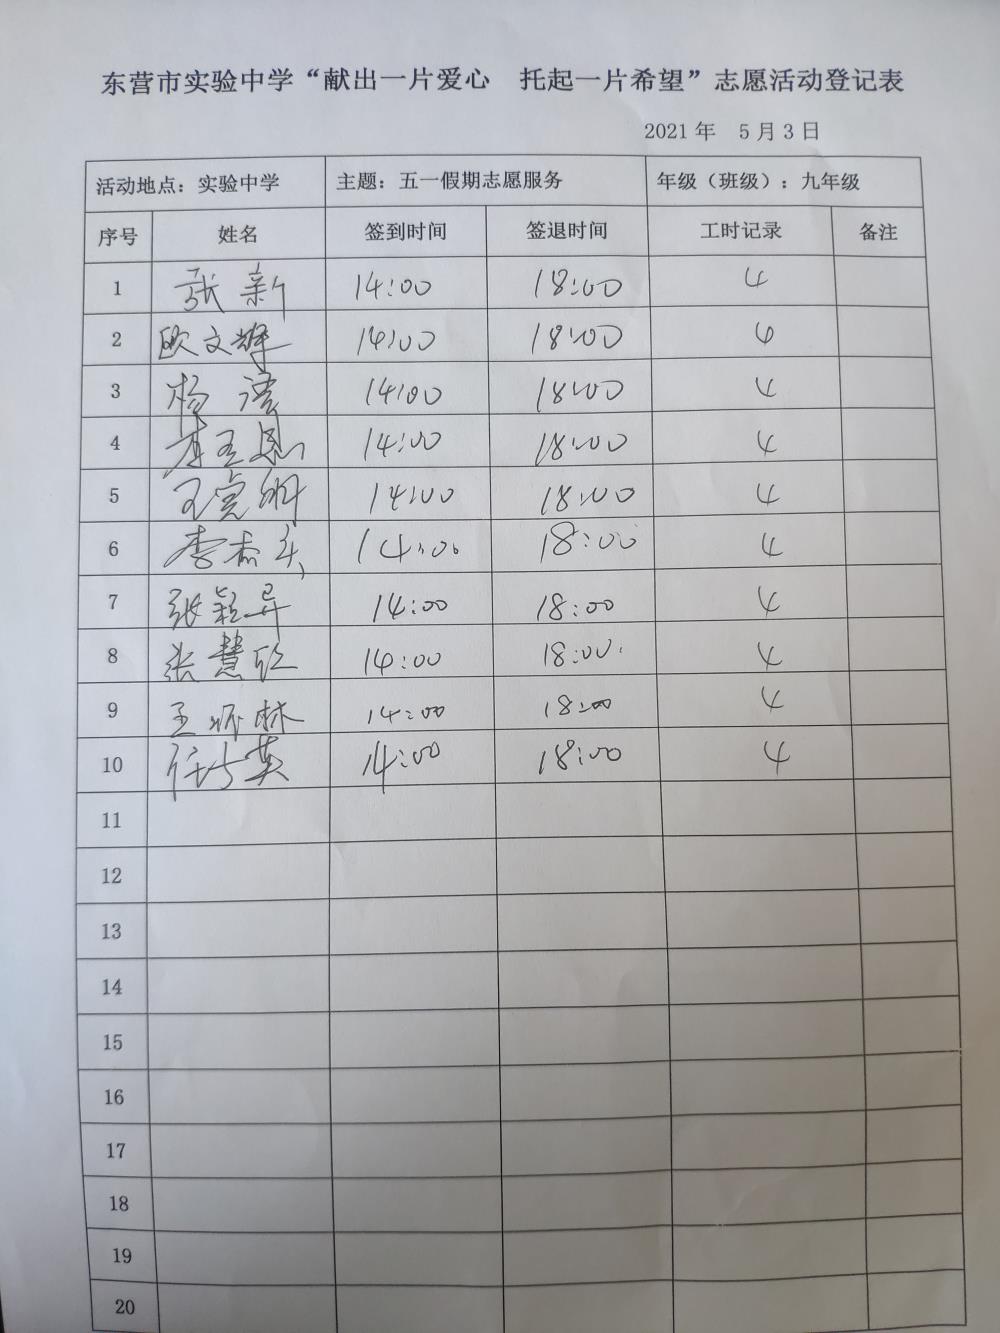 东营市实验中学“献出一片爱心 托起一片希望”志愿活动登记表
2021 年 5 月 3 日
活动地点：实验中学 主题：五一假期志愿服务 年级（班级）：九年级
序号 姓名 签到时间 签退时间 工时记录 备注
1 张新 14:00 18:00 4
2 欧文辉 14:00 18:00 4
3 杨 14:00 18:00 4
4 14:00 18:00 4
5 王 14:00 18:00 4
6 李 14:00 18:00 4
7 张颖异 14:00 18:00 4
8 张慧欣 14:00 18:00 4
9 王 林 14:00 18:00 4
10 任 英 14:00 18:00 4
11
12
13
14
15
16
17
18
19
20